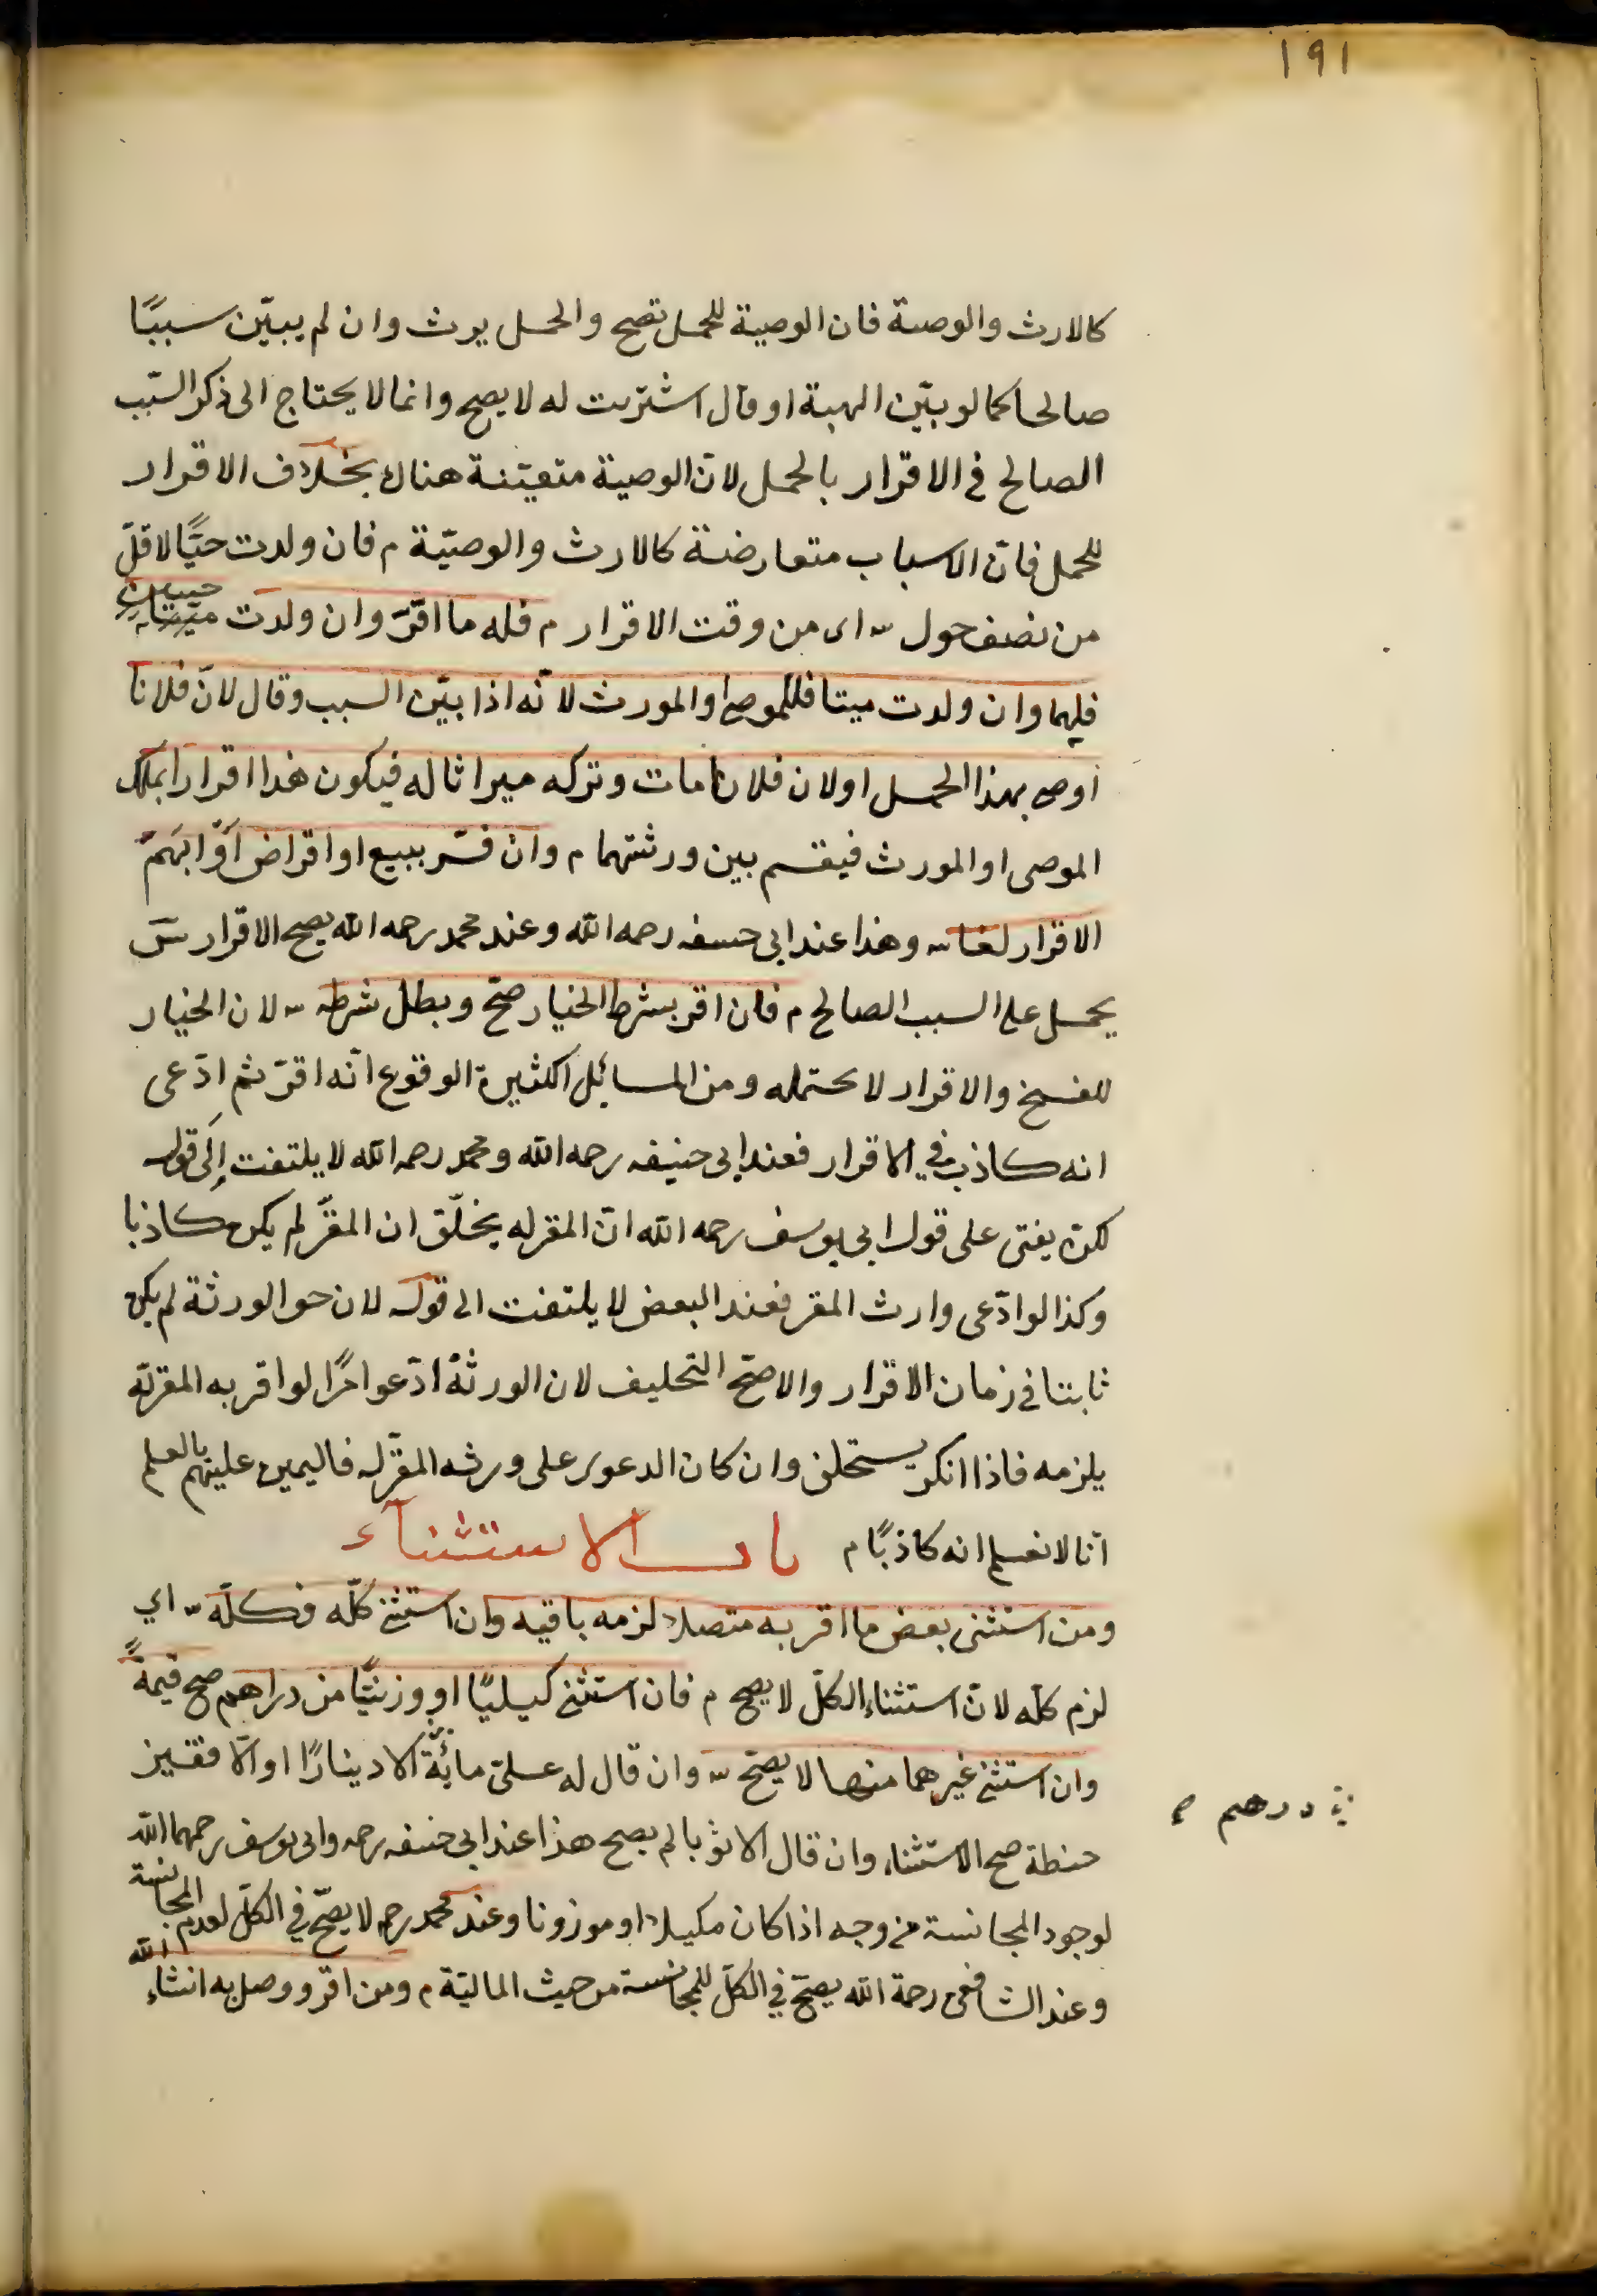 ١٩١
كالارث والوصية فان الوصية للحمل تصح والحمل يرث وان لم يبيّن سببًا
صالحا كما لو بيّن الهبة او قال اشتريت له لا يصح وانما لا يحتاج الى ذكر السّبب
الصالح في الاقرار بالحمل لانّ الوصية متعيّنة هناك بخلاف الاقرار
للحمل فانّ الاسباب متعارضة كالارث والوصيّة م فان ولدت حيًّا لاقلّ
من نصف حول ش اى من وقت الاقرار م فله ما اقرّ وان ولدت حيين
فلهما وان ولدت ميتا فللموصى او المورث لانّه اذا بيّن السبب وقال لانّ فلانا
اوصى بهذا الحمل او لان فلانا مات وتركه ميراثا له فيكون هذا اقرارا بملك
الموصى او المورث فيقسم بين ورثتهما م وان فسّر ببيع او اقراض او ابهم
الاقرار لغا ش وهذا عند ابى حنيفه رحمه الله وعند محمد رحمه الله يصح الاقرار
يحمل على السبب الصالح م فان اقر بشرط الخيار صحّ وبطل شرطه ش لان الخيار
للفسخ والاقرار لا يحتمله ومن المسائل الكثيرة الوقوع انّه اقرّ ثم ادّعى
انه كاذب في الاقرار فعند ابى حنيفه رحمه الله ومحمد رحمه الله لا يلتفت إلى قوله
لكن يفتى على قول ابى يوسف رحمه الله انّ المقر له يحلّف ان المقرّ لم يكن كاذبا
وكذا لو ادّعى وارث المقر فعند البعض لا يلتفت الى قوله لان حق الورثة لم يكن
ثابتا في زمان الاقرار والاصحّ التحليف لان الورثة ادّعوا امرًا لو اقر به المقرّ له
يلزمه فاذا انكر يستحلف وان كان الدعوى على ورثه المقرّ له فاليمين عليهم بالعلم
انّا لا نعلم انه كاذبًا م باب الاستثنآء
ومن استثنى بعض ما اقر به متصلا لزمه باقيه وان استثنى كلّه فكلّه ش اي
لزم كلّه لانّ استثناء الكلّ لا يصح م فان استثنى كيليًا او وزنيًّا من دراهم صح قيمةً
وان استثنى غيرهما منها لا يصحّ ش وان قال له علىّ مائة الا دينارًا او الّا قفيز
درهم صح
حنطة صح الاستثناء وان قال الا ثوبا لم يصح هذا عند ابى حنيفه رحمه وابى يوسف رحمهما الله
لوجود المجانسة من وجه اذا كان مكيلا او موزونا وعند محمد رحمه لا يصحّ في الكلّ لعدم المجانسة
وعند الشافعى رحمة الله يصحّ في الكلّ للمجانسة من حيث الماليّة م ومن اقر ووصل به انشاء الله